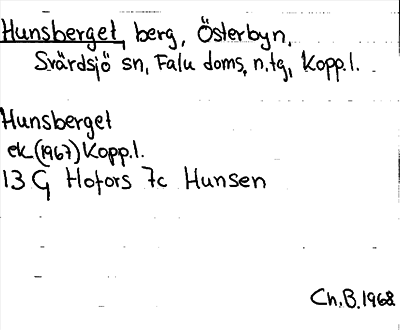 Hunsberget, berg, Österbyn,
Svärdsjö sn, Falu doms, n.tg, Kopp.l.
Hunsberget
ek (1967) Kopp.l.
13 G Hofors 7c Hunsen
Ch, B. 1968